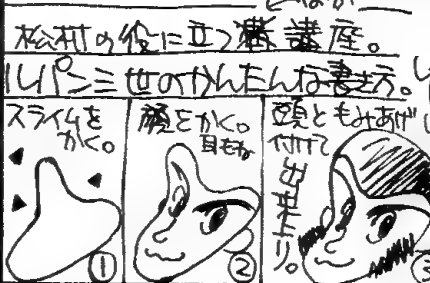 松村の役に立つ講座。
ルパン三世のかんたんな書き方。
スライムを
かく。
顔をかく。
耳もね
頭ともみあげ
付けて
出来上り。
①
②
③